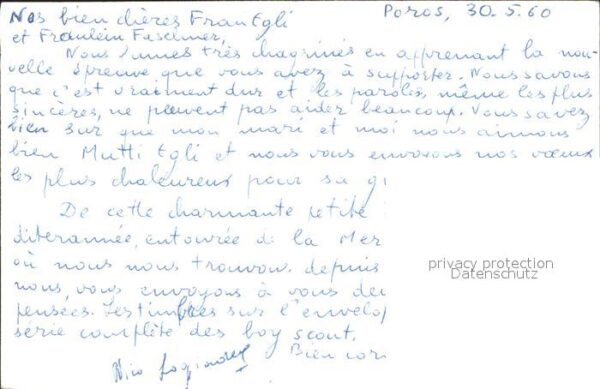 Poros, 30.5.60
Nos bien chères Frau Egli
et Fräulein
Nous fûmes très chagrinés en apprenant la nou-
velle épreuve que vous avez à supporter. Nous savons
que c'est vraiment dur et les paroles, même les plus
sincères, ne peuvent pas aider beaucoup. Vous savez
bien sur que mon mari et moi nous aimons
bien Mutti Egli et nous vous envoyons nos vœux
les plus chaleureux pour sa
De cette charmante petite
diterannée, entourée de la Mer
où nous nous trouvons depuis
nous, vous envoyons à vous
pensées. Les timbres sur l'envelop
série complète des boy scout.
Bien cor
Nico
privacy protection
Datenschutz